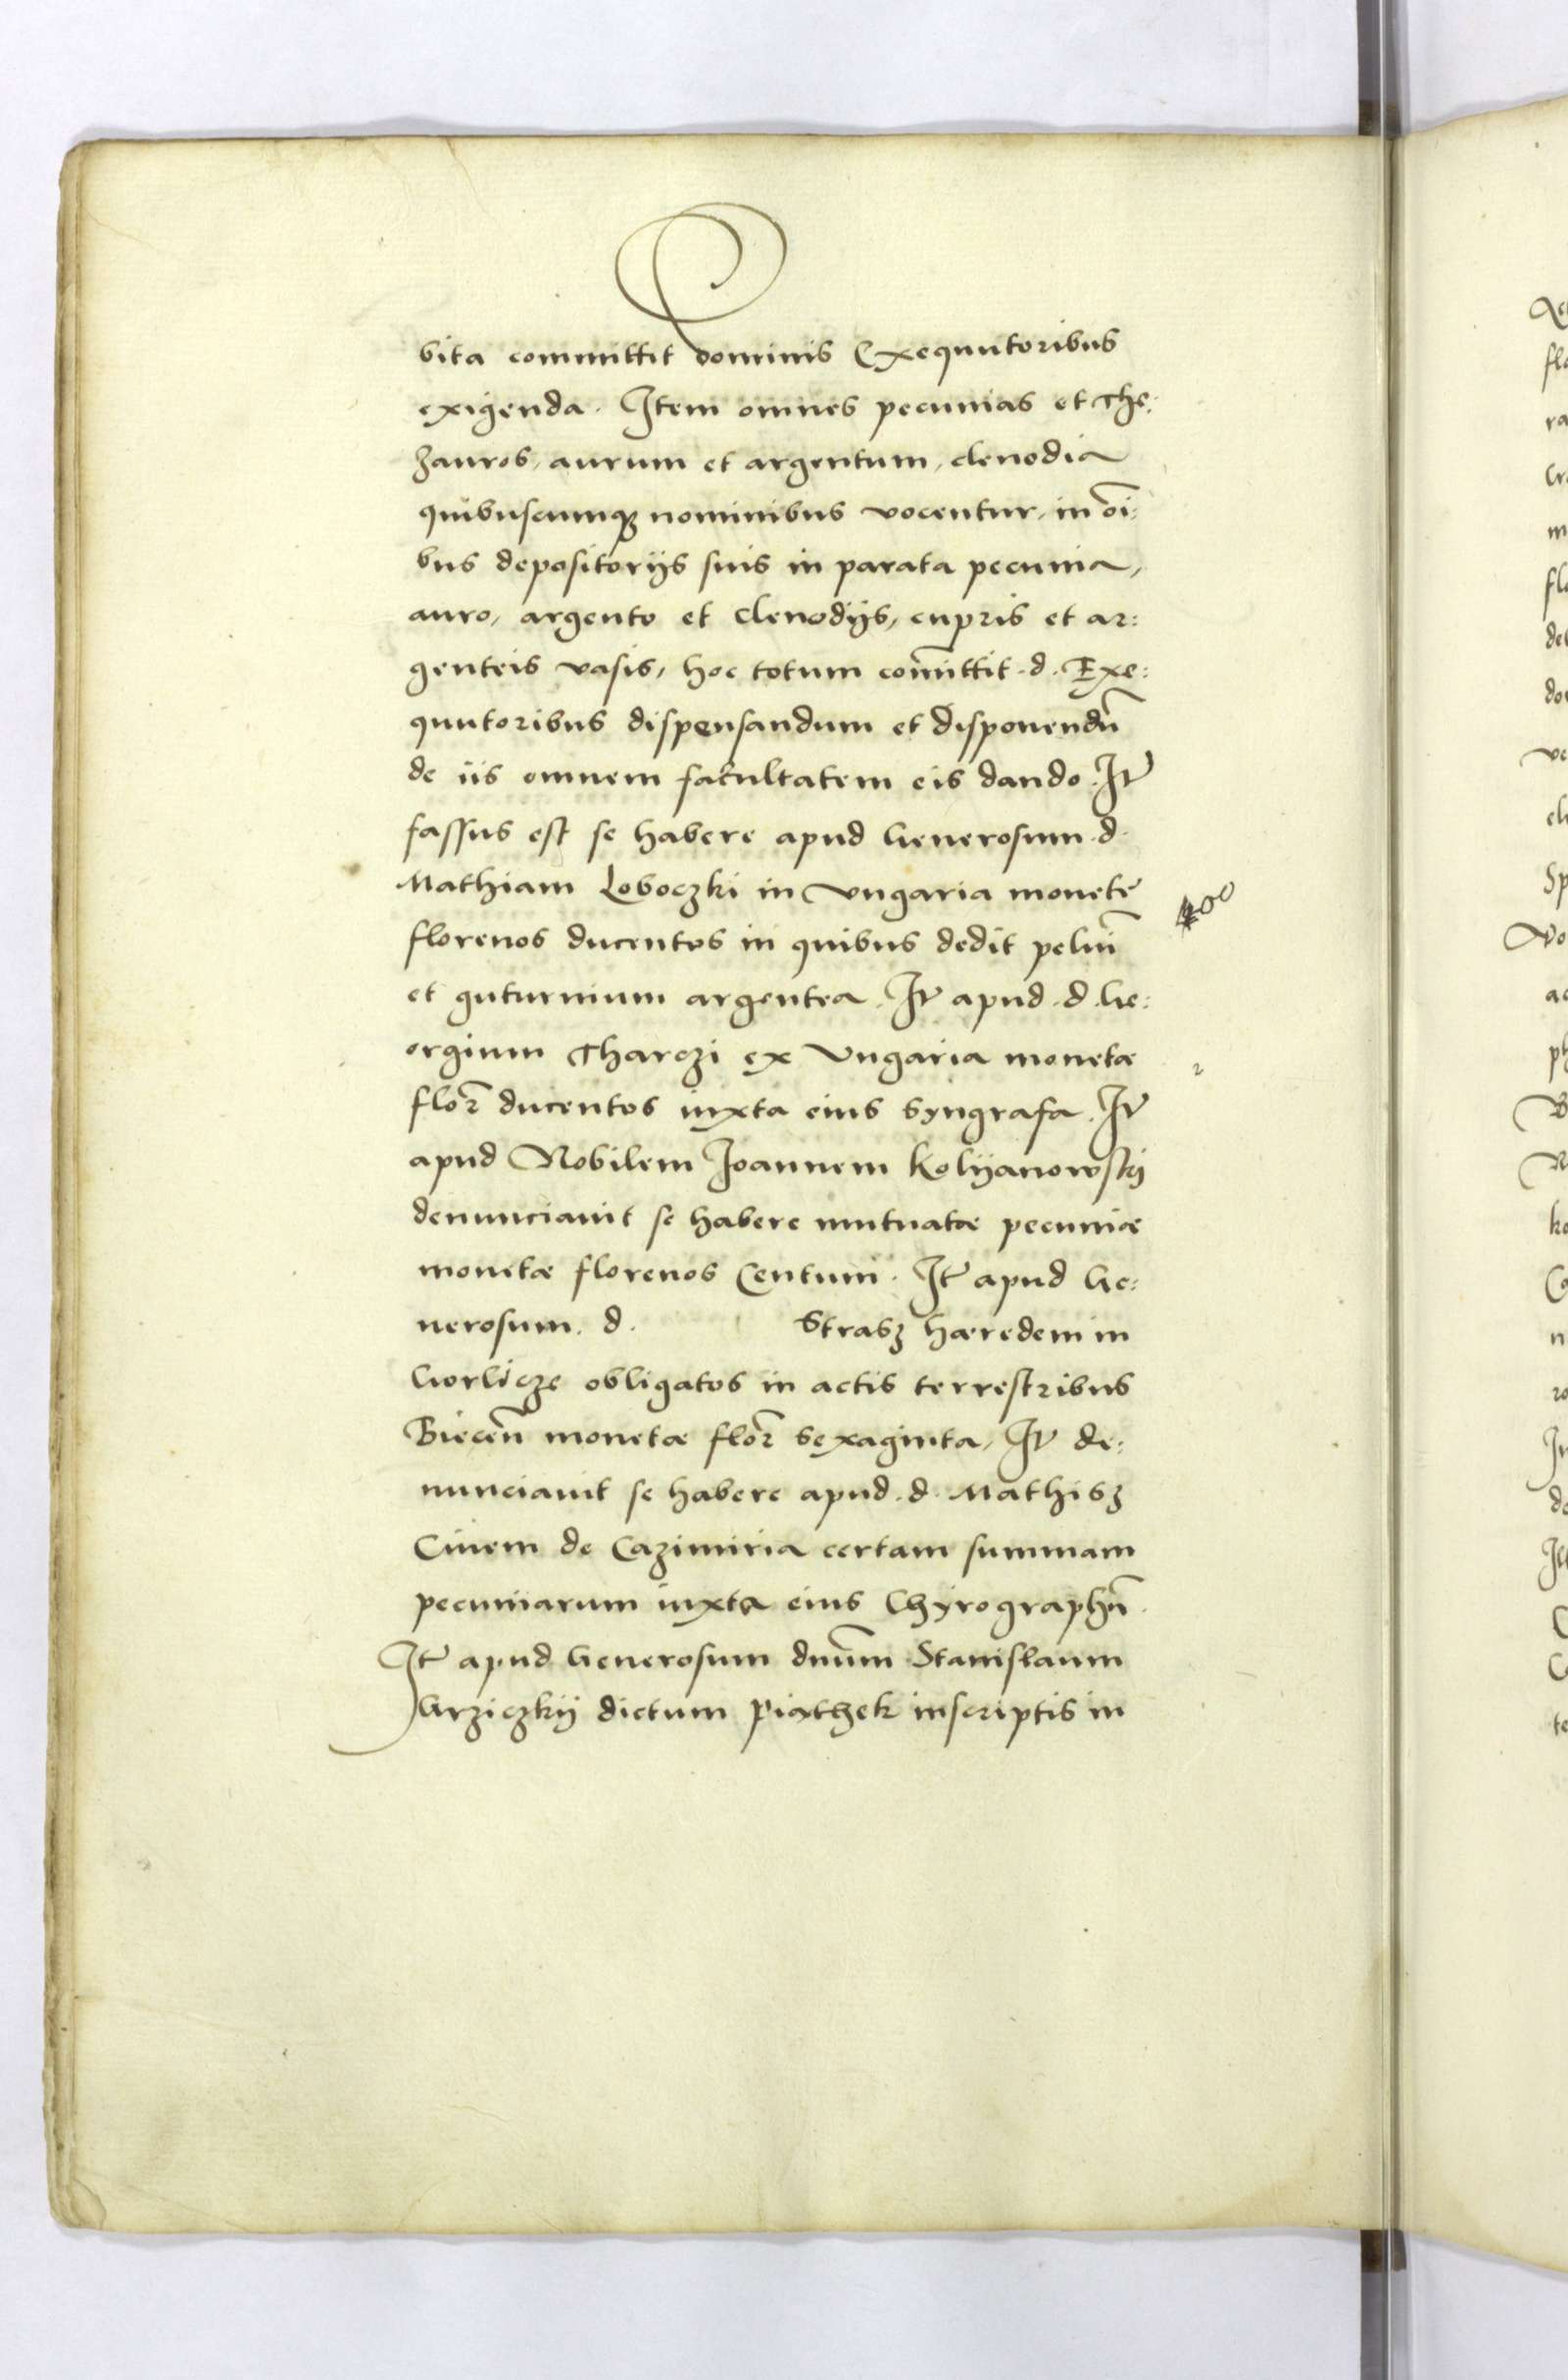 bita committit dominis Exequutoribus
exigenda. Item omnes pecunias et The:
zauros, aurum et argentum, clenodia
quibuscumq; nominibus vocentur, in oī:
bus depositorijs suis in parata pecunia,
auro, argento et clenodijs, cupris et ar:
genteis vasis, hoc totum com̄ittit. d. Exe:
quutoribus dispensandum et disponendū
de iis omnem facultatem eis dando. It̄
fassus est se habere apud Generosum. d.
Mathiam Loboczki in Vngaria monetę
400
florenos ducentos in quibus dedit peluī
et guturnium argentea. It̄ apud. d. Ge:
orgium Tharczi ex Vngaria monetæ
2
flor̄ ducentos iuxta eius syngrafa. It̄
apud Nobilem Joannem Kolijanowskij
denunciauit se habere mutuatæ pecuniæ
monetæ florenos Centum. It̄ apud Ge:
nerosum. d. Strasz hæredem in
Gorlicze obligatos in actis terrestribus
Biecen̄ monetæ flor̄ sexaginta, It̄ de:
nunciauit se habere apud. d. Mathisz
Ciuem de Cazimiria certam summam
pecuniarum iuxta eius Chyrographū.
It̄ apud Generosum dnūm Stanislaum
Grziczkij dictum Piąthek inscriptis in